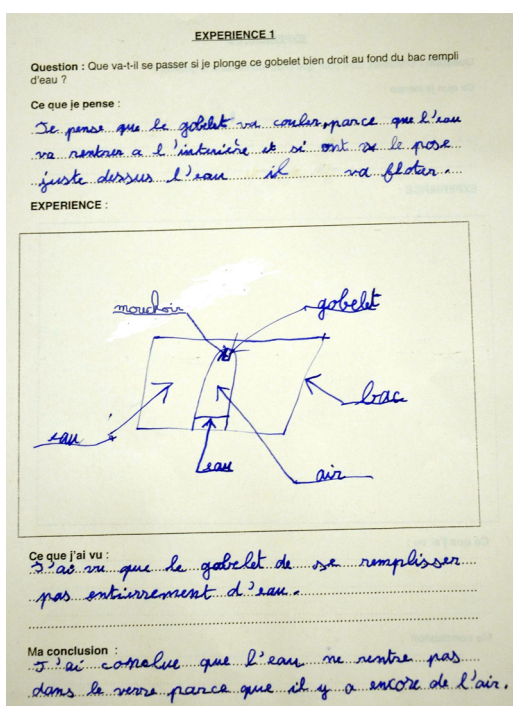 EXPERIENCE 1
Question : Que va-t-il se passer si je plonge ce gobelet bien droit au fond du bac rempli
d'eau ?
Ce que je pense :
Je pense que le gobelet va couler, parce que l'eau
va rentrer a l'interière et si ont se le pose
juste dessus l'eau il va flotar.
EXPERIENCE :
mouchoir
gobelet
bac
eau
eau
air
Ce que j'ai vu :
J'ai vu que le gobelet de se remplisser
pas entiérrement d'eau.
Ma conclusion :
J'ai conclue que l'eau ne rentre pas
dans le verre parce que il y a encore de l'air.